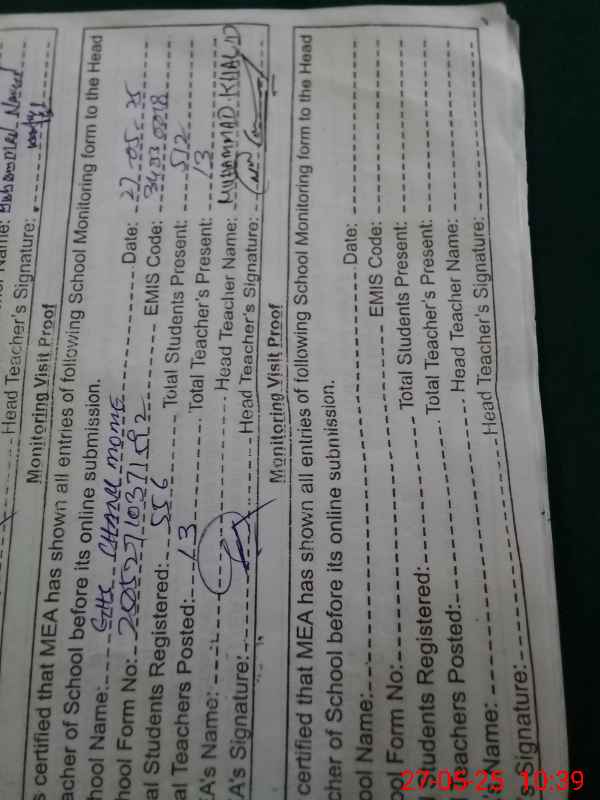 Name: Muhammad Nawaz
Head Teacher's Signature:
Monitoring Visit Proof
s certified that MEA has shown all entries of following School Monitoring form to the Head
acher of School before its online submission.
hool Name: GHS CHANNU MOME Date: 27-05-25
hool Form No: EMIS Code:
al Students Registered: 556 Total Students Present: 512
al Teachers Posted: 13 Total Teacher's Present: 13
EA's Name: Head Teacher Name: MUHAMMAD KHALID
EA's Signature: Head Teacher's Signature:
Monitoring Visit Proof
certified that MEA has shown all entries of following School Monitoring form to the Head
cher of School before its online submission.
ool Name: Date:
ol Form No: EMIS Code:
Students Registered: Total Students Present:
Teachers Posted: Total Teacher's Present:
s Name: Head Teacher Name:
s Signature: Head Teacher's Signature:
27-05-25 10:39